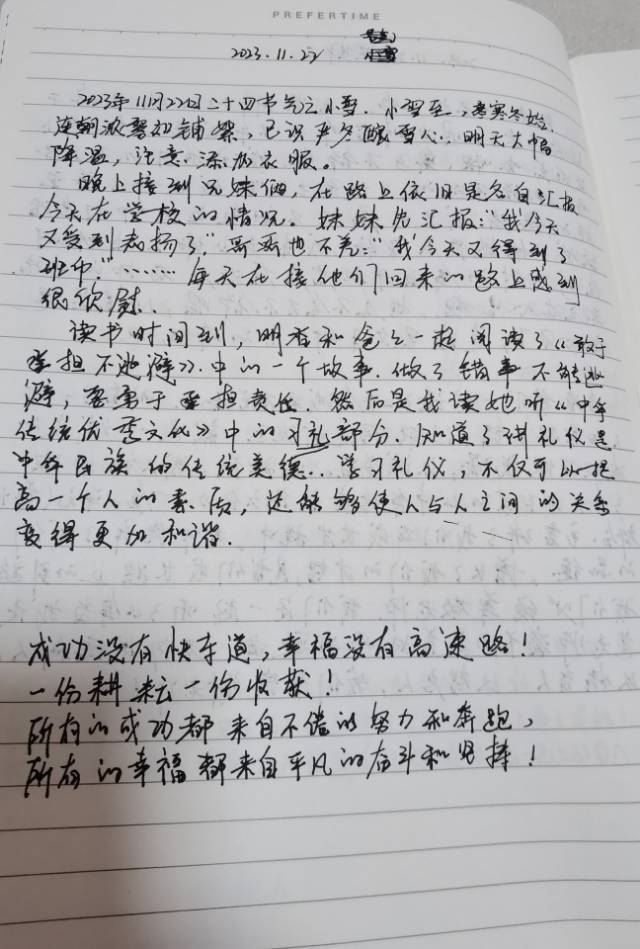 PREFERTIME
2023.11.22
小雪
2023年11月22日二十四节气之小雪.小雪至,寒冬始.
连朝浓雾如铺絮,已识严冬酿雪心.明天大幅
降温,注意添加衣服。
晚上接到兄妹俩,在路上依旧是各自汇报
今天在学校的情况.妹妹先汇报:"我今天
又受到表扬了."哥哥也不差:"我今天又得到了
班币."……每天在接他们回来的路上感到
很欣慰.
读书时间到,明哥和爸爸一起阅读了《敢于
承担不逃避》中的一个故事.做了错事不能逃
避,要勇于承担责任.然后是我读她听《中华
传统优秀文化》中的习礼部分.知道了讲礼仪是
中华民族的传统美德.学习礼仪,不仅可以提
高一个人的素质,还能够使人与人之间的关系
变得更加和谐.
成功没有快车道,幸福没有高速路!
一份耕耘一份收获!
所有的成功都来自不倦的努力和奔跑,
所有的幸福都来自平凡的奋斗和坚持!